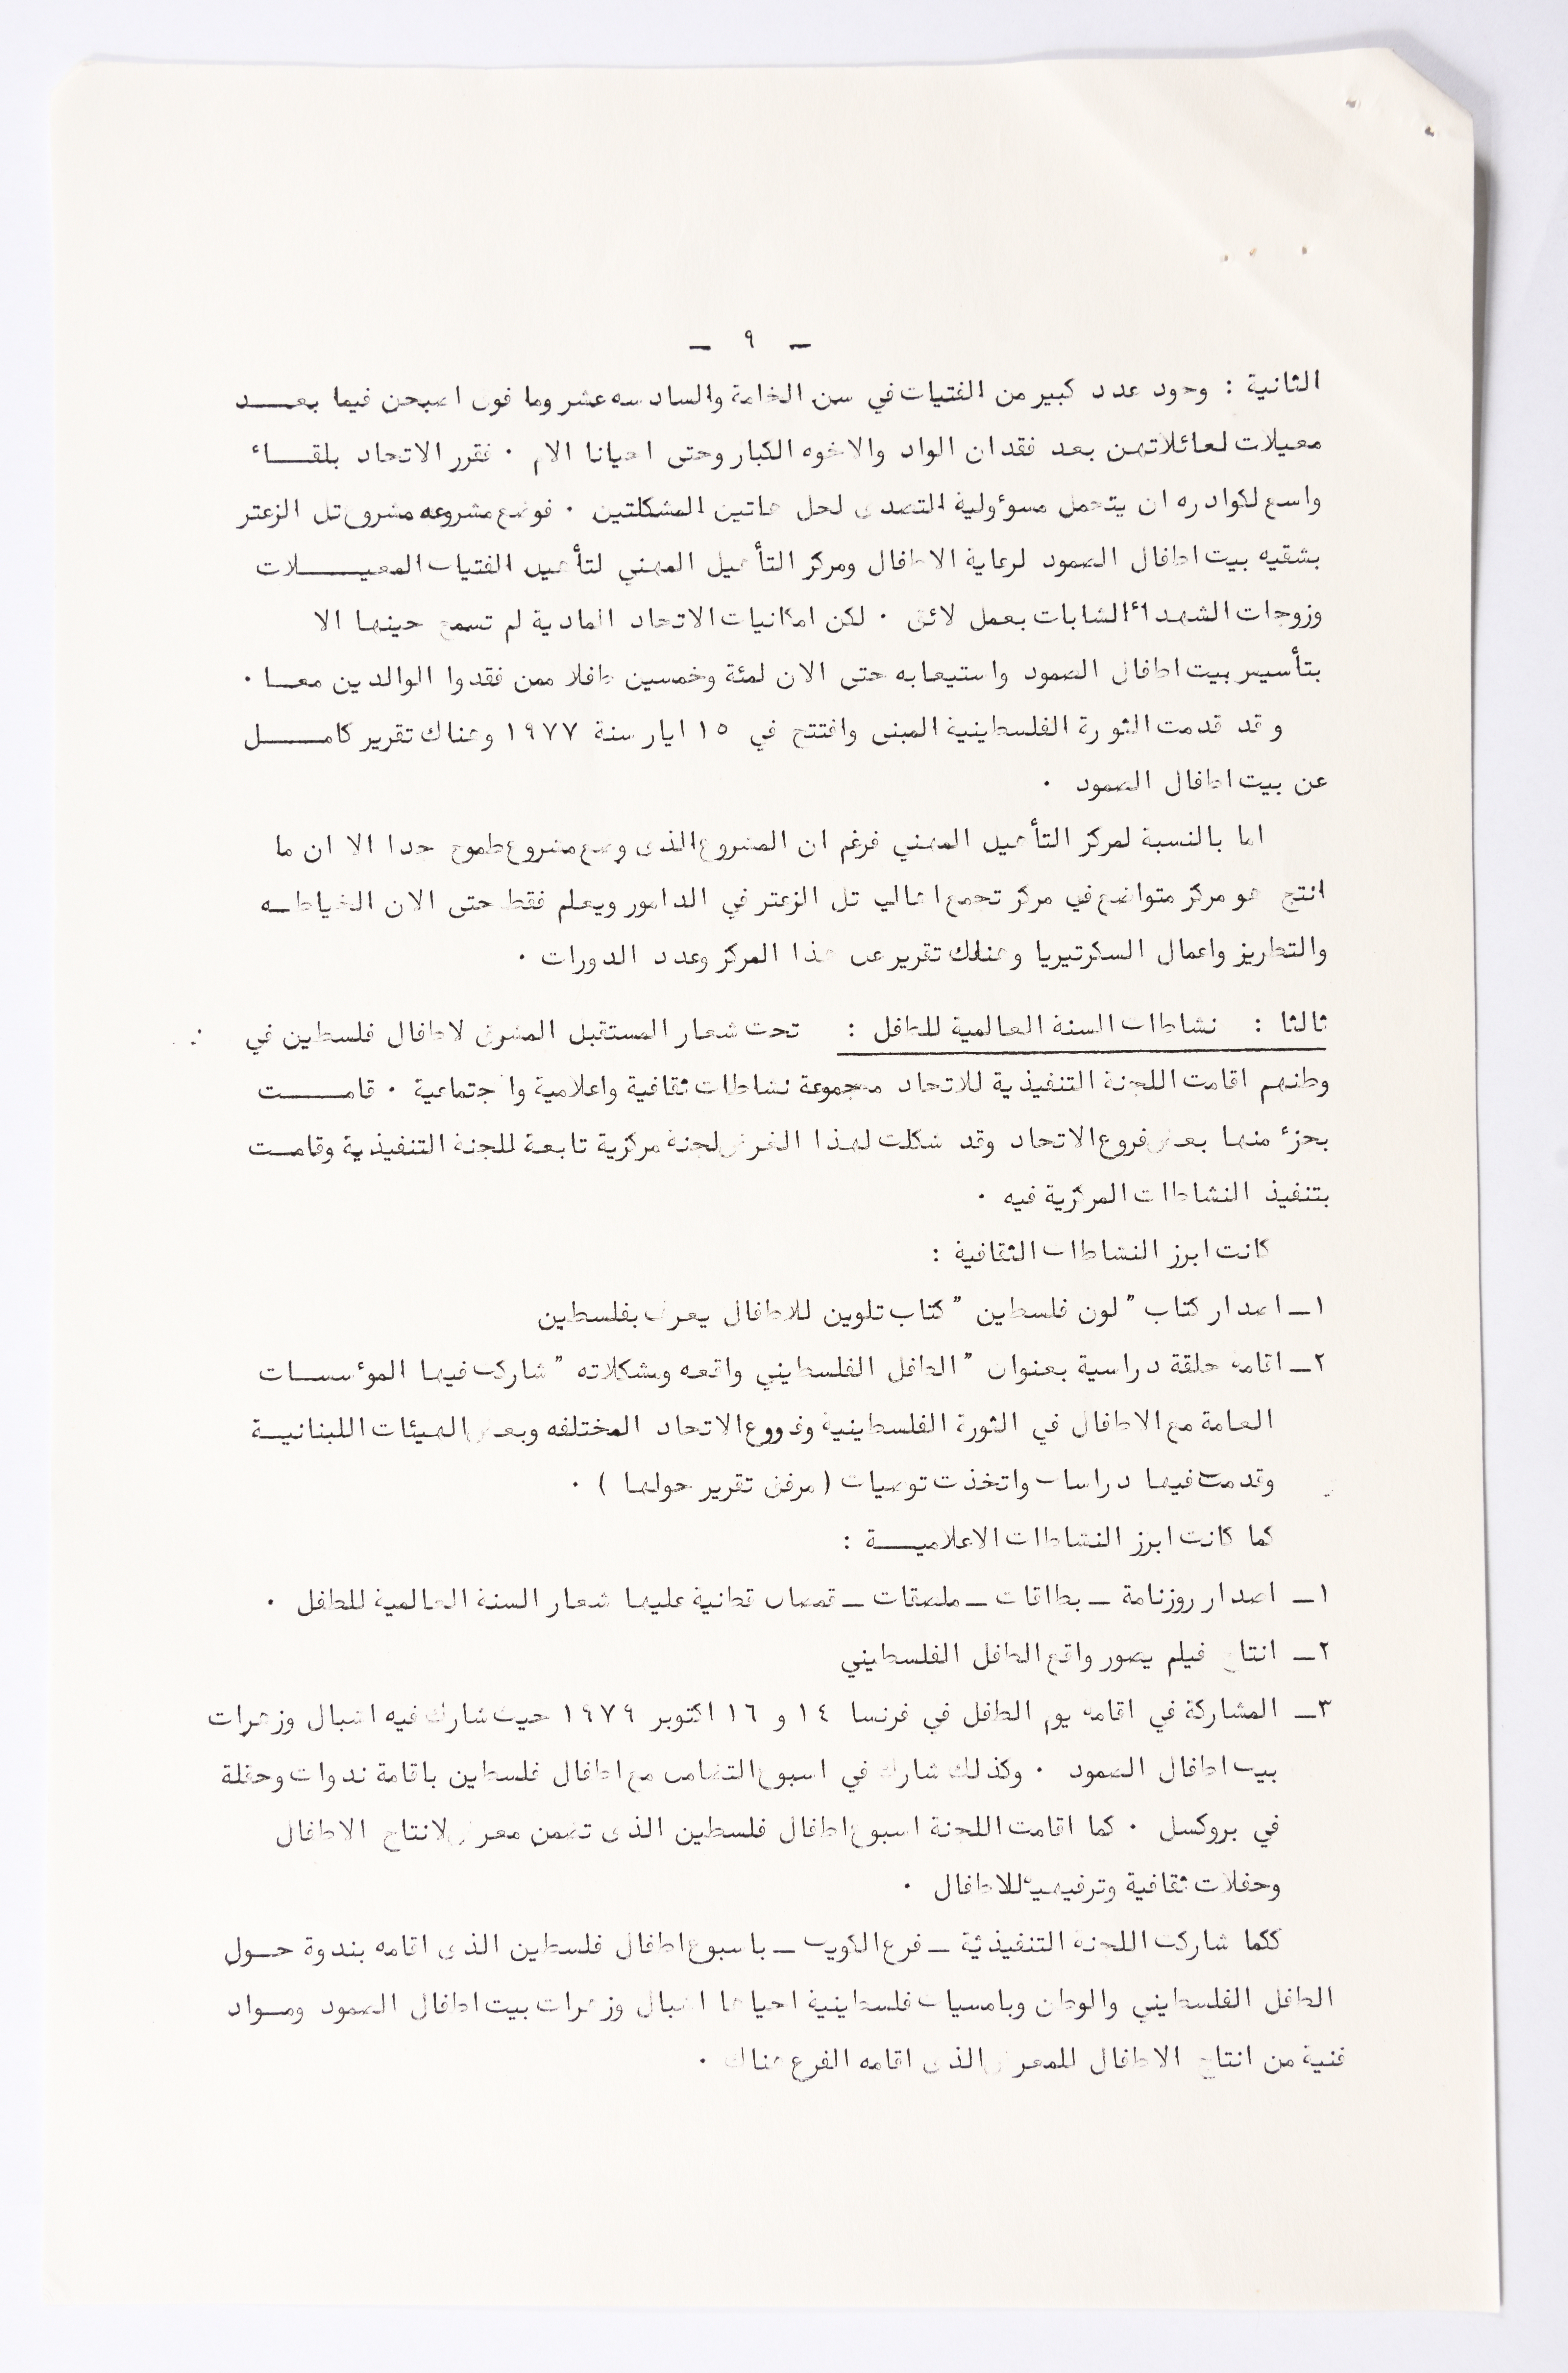 - ٩ -
الثانية : وجود عدد كبير من الفتيات في سن الخامة والسادسه عشر وما فوق اصبحن فيما بعــد
معيلات لعائلاتهن بعد فقدان الواد والاخوه الكبار وحتى احيانا الام . فقرر الاتحاد بلقــاء
واسع لكوادره ان يتحمل مسؤولية التصدى لحل هاتين المشكلتين . فوضع مشروعه مشروع تل الزعتر
بشقيه بيت اطفال الصمود لرعاية الاطفال ومركز التأهيل المهني لتأهيل الفتيات المعيــلات
وزوجات الشهداء الشابات بعمل لائق . لكن امكانيات الاتحاد المادية لم تسمح حينها الا
بتأسيس بيت اطفال الصمود واستيعابه حتى الان لمئة وخمسين طفلا ممن فقدوا الوالدين معــا .
وقد قدمت الثورة الفلسطينية المبنى وافتتح في ١٥ ايار سنة ١٩٧٧ وهناك تقرير كامــل
عن بيت اطفال الصمود .
اما بالنسبة لمركز التأهيل المهني فرغم ان المشروع الذى وضع مشروع طموح جدا الا ان ما
انتج هو مركز متواضع في مركز تجمع اهالي تل الزعتر في الدامور ويعلم فقط حتى الان الخياطــه
والتطريز واعمال السكرتيريا وهنلك تقرير عن هذا المركز وعدد الدورات .
ثالثا : نشاطات السنة العالمية للطفل : تحت شعار المستقبل المشرق لاطفال فلسطين في
وطنهم اقامت اللجنة التنفيذية للاتحاد مجموعة نشاطات ثقافية واعلامية واجتماعية . قامــت
بجزء منها بعض فروع الاتحاد وقد شكلت لهذا الغرض لجنة مركزية تابعة للجنة التنفيذية وقامــت
بتنفيذ النشاطات المركزية فيه .
كانت ابرز النشاطات الثقافية :
١ــ اصدار كتاب " لون فلسطين " كتاب تلوين للاطفال يعرف بفلسطين
٢ــ اقامة حلقة دراسية بعنوان " الطفل الفلسطيني واقعه ومشكلاته " شاركت فيها المؤسســات
العامة مع الاطفال في الثورة الفلسطينية وفرووع الاتحاد المختلفه وبعض الهيئات اللبنانيــة
وقدمت فيها دراسات واتخذت توصيات ( مرفق تقرير حولها ) .
كما كانت ابرز النشاطات الاعلاميــة :
١ــ اصدار روزنامة ــ بطاقات ــ ملصقات ــ قمصان قطنية عليها شعار السنة العالمية للطفل .
٢ــ انتاج فيلم يصور واقع الطفل الفلسطيني
٣ــ المشاركة في اقامة يوم الطفل في فرنسا ١٤ و ١٦ اكتوبر ١٩٧٩ حيث شارك فيه اشبال وزهرات
بيت اطفال الصمود . وكذلك شارك في اسبوع التضامن مع اطفال فلسطين باقامة ندوات وحفلة
في بروكسل . كما اقامت اللجنة اسبوع اطفال فلسطين الذى تضمن معرض لانتاج الاطفال
وحفلات ثقافية وترفيهية للاطفال .
ككما شاركت اللجنة التنفيذئية ــ فرع الكويت ــ باسبوع اطفال فلسطين الذى اقامه بندوة حــول
الطفل الفلسطيني والوطن وبامسيات فلسطينية احياها اشبال وزهرات بيت اطفال الصمود ومــواد
فنية من انتاج الاطفال للمعرض الذى اقامه الفرع هناك .